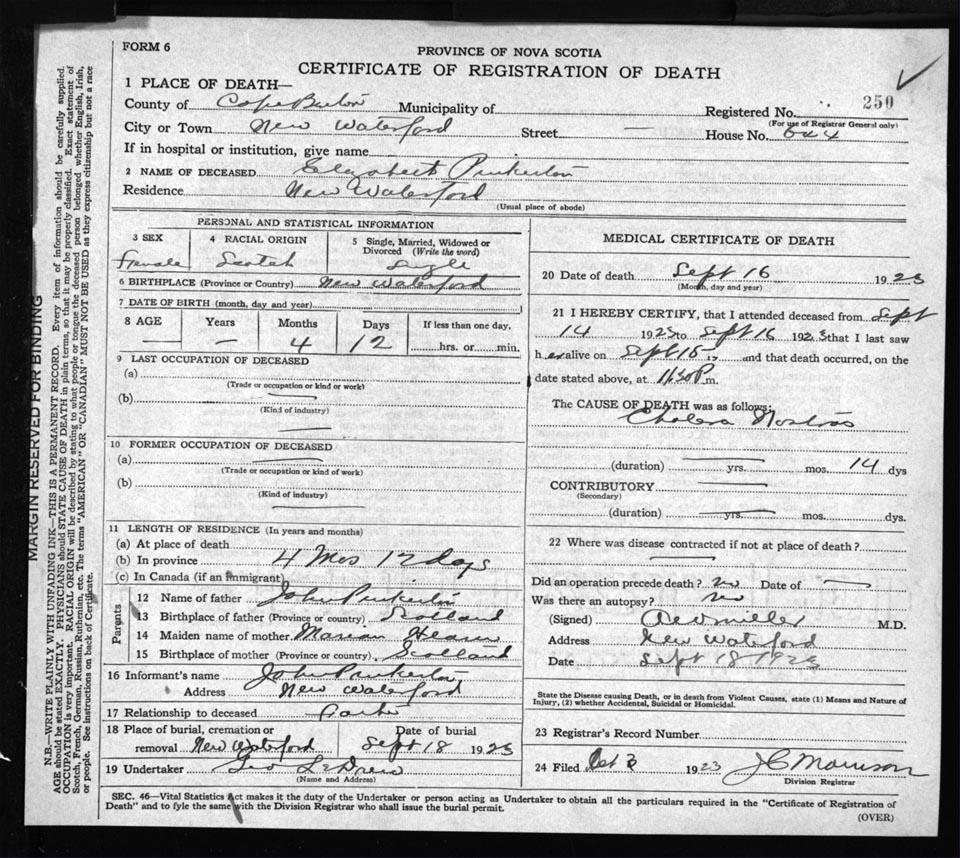 FORM 6
PROVINCE OF NOVA SCOTIA
CERTIFICATE OF REGISTRATION OF DEATH
1 PLACE OF DEATH—
County of Cape Breton Municipality of
Registered No. 250
(For use of Registrar General only)
City or Town New Waterford Street — House No.
If in hospital or institution, give name
2 NAME OF DECEASED Elizabeth Pinkerton
Residence New Waterford
(Usual place of abode)
PERSONAL AND STATISTICAL INFORMATION
3 SEX
Female
4 RACIAL ORIGIN
Scotch
5 Single, Married, Widowed or Divorced (Write the word)
Single
6 BIRTHPLACE (Province or Country) New Waterford
7 DATE OF BIRTH (month, day and year)
8 AGE Years Months Days If less than one day.
— — 4 12 hrs. or min.
9 LAST OCCUPATION OF DECEASED
(a)
(Trade or occupation or kind or work)
(b)
(Kind of industry)
10 FORMER OCCUPATION OF DECEASED
(a)
(Trade or occupation or kind of work)
(b)
(Kind of industry)
11 LENGTH OF RESIDENCE (In years and months)
(a) At place of death
(b) In province 4 Mos 12 days
(c) In Canada (if an immigrant)
Parents
12 Name of father John Pinkerton
13 Birthplace of father (Province or country) Scotland
14 Maiden name of mother Marian
15 Birthplace of mother (Province or country) Scotland
16 Informant's name John Pinkerton
Address New Waterford
17 Relationship to deceased
18 Place of burial, cremation or removal New Waterford
Date of burial Sept 18 1923
19 Undertaker Geo LeDrew
(Name and Address)
MEDICAL CERTIFICATE OF DEATH
20 Date of death Sept 16 1923
(Month, day and year)
21 I HEREBY CERTIFY, that I attended deceased from Sept
14 1923 to Sept 16 1923 that I last saw
her alive on Sept 15 19 and that death occurred, on the
date stated above, at 11.30 P m.
The CAUSE OF DEATH was as follows:
Cholera Nostras
(duration) yrs. mos. 14 dys
CONTRIBUTORY
(Secondary)
(duration) yrs. mos. dys.
22 Where was disease contracted if not at place of death?
Did an operation precede death? no Date of —
Was there an autopsy? no
(Signed) Miller M.D.
Address New Waterford
Date Sept 18 1923
State the Disease causing Death, or in death from Violent Causes, state (1) Means and Nature of
Injury, (2) whether Accidental, Suicidal or Homicidal.
23 Registrar's Record Number
24 Filed Oct 1923 J C Morrison
Division Registrar
SEC. 46—Vital Statistics Act makes it the duty of the Undertaker or person acting as Undertaker to obtain all the particulars required in the "Certificate of Registration of
Death" and to fyle the same with the Division Registrar who shall issue the burial permit.
(OVER)
MARGIN RESERVED FOR BINDING
N.B.—WRITE PLAINLY WITH UNFADING INK—THIS IS A PERMANENT RECORD. Every item of information should be carefully supplied.
AGE should be stated EXACTLY. PHYSICIANS should STATE CAUSE OF DEATH in plain terms, so that it may be properly classified. Exact statement of
OCCUPATION is very important. RACIAL ORIGIN will be described by stating to what people or tongue the deceased person belonged whether English, Irish,
Scotch, French, German, Russian, Ruthenian, etc. The terms "AMERICAN" OR "CANADIAN" MUST NOT BE USED as they express citizenship but not a race
or people. See instructions on back of Certificate.